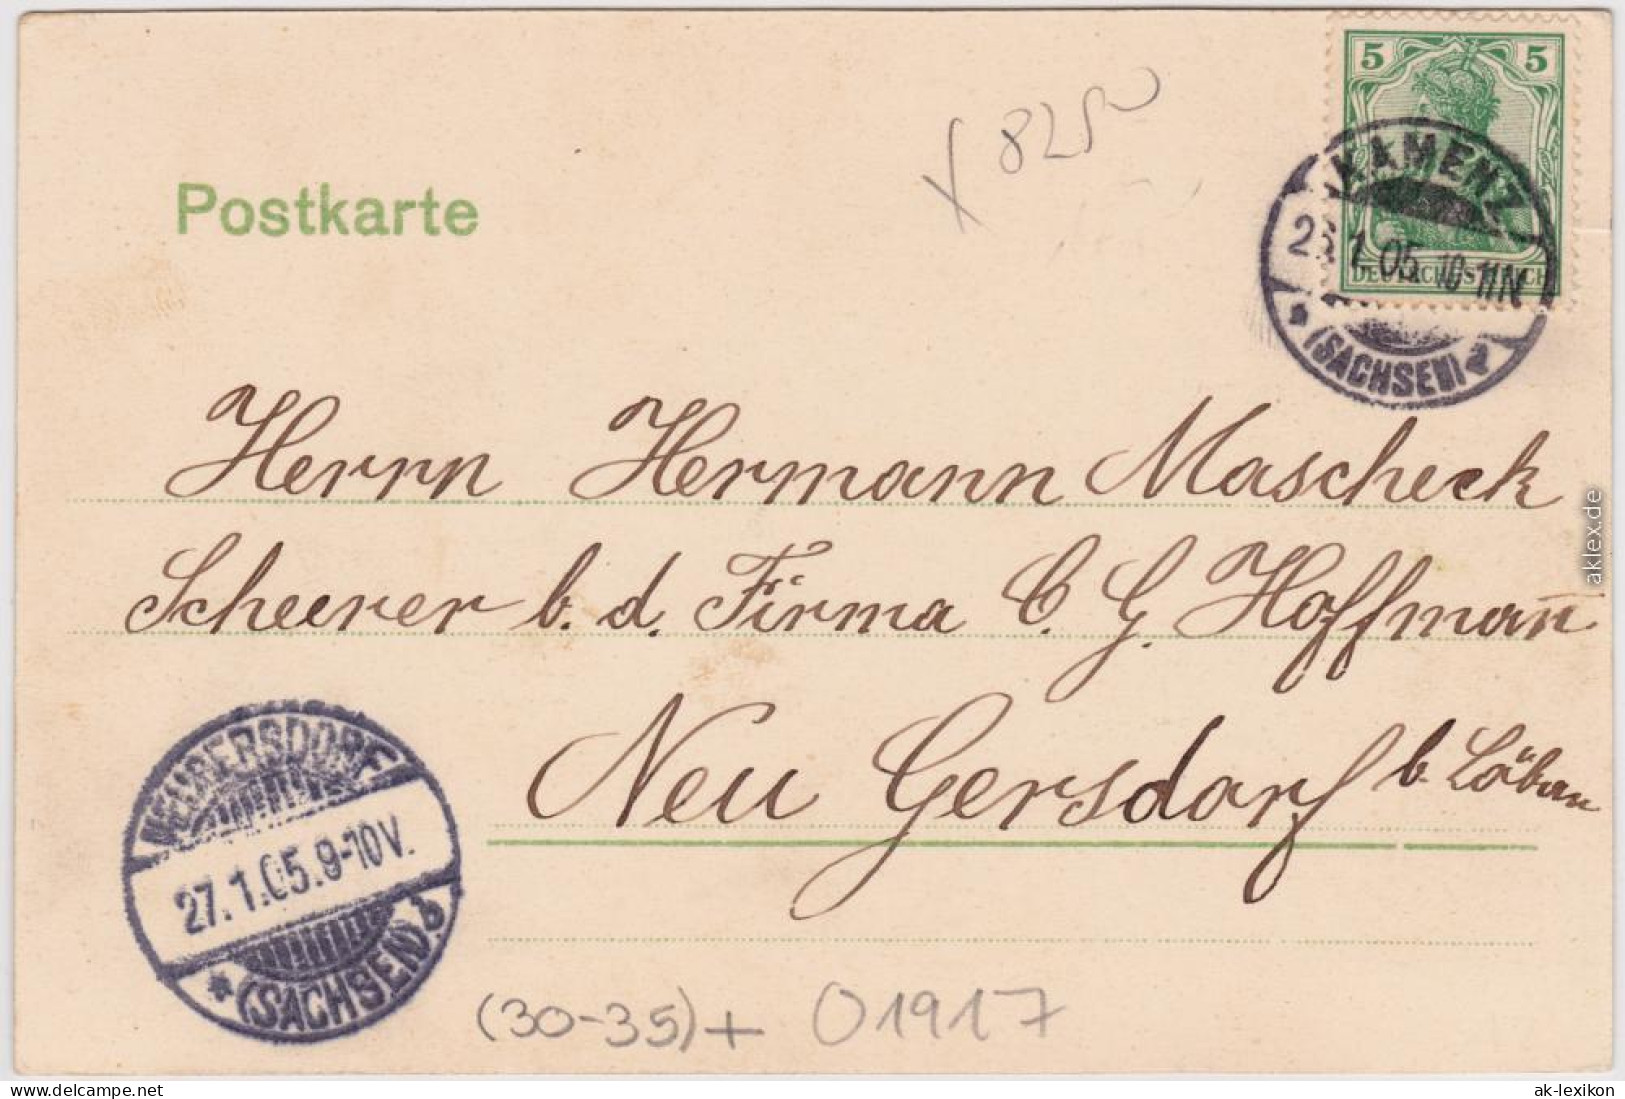 5 5
x 8250
Postkarte
KAMENZ
1.05. 10-11N
DEUTSCHES REICH
* (SACHSEN) a
Herrn Hermann Mascheck
Scheerer b. d. Firma C. G. Hoffmann̄
aklex.de
Neu Gersdorf b. Löbau
NEUGERSDORF
27.1.05.9-10V.
* (SACHSEN) b
(30-35)+ 01917
delcampe.net
ak-lexikon